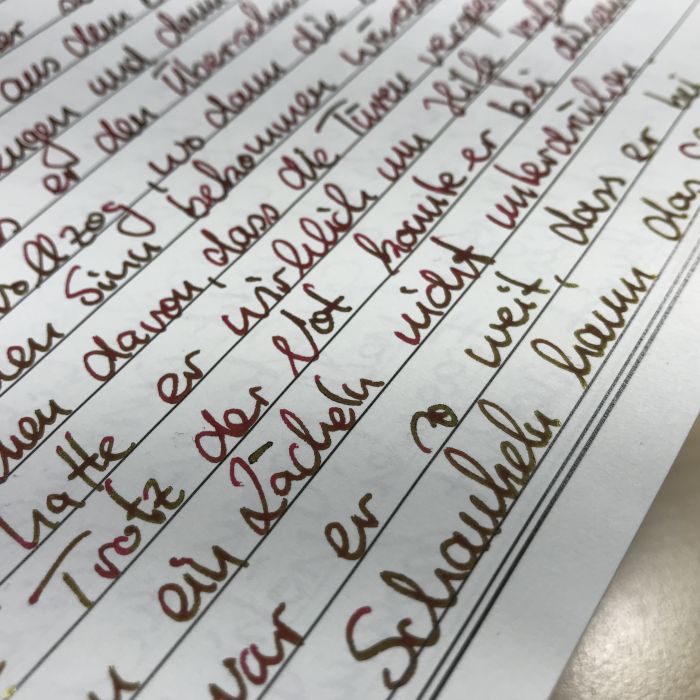 aus dem
und dann
er den Überschw
vollzog, wo dann die
Sinn bekommen
davon, dass die Türen
hatte er wirklich um Hilfe
Trotz der Not konnte er bei diesem
ein Lächeln nicht unterdrücken.
war er so weit, dass er bei
Schaukeln kaum das